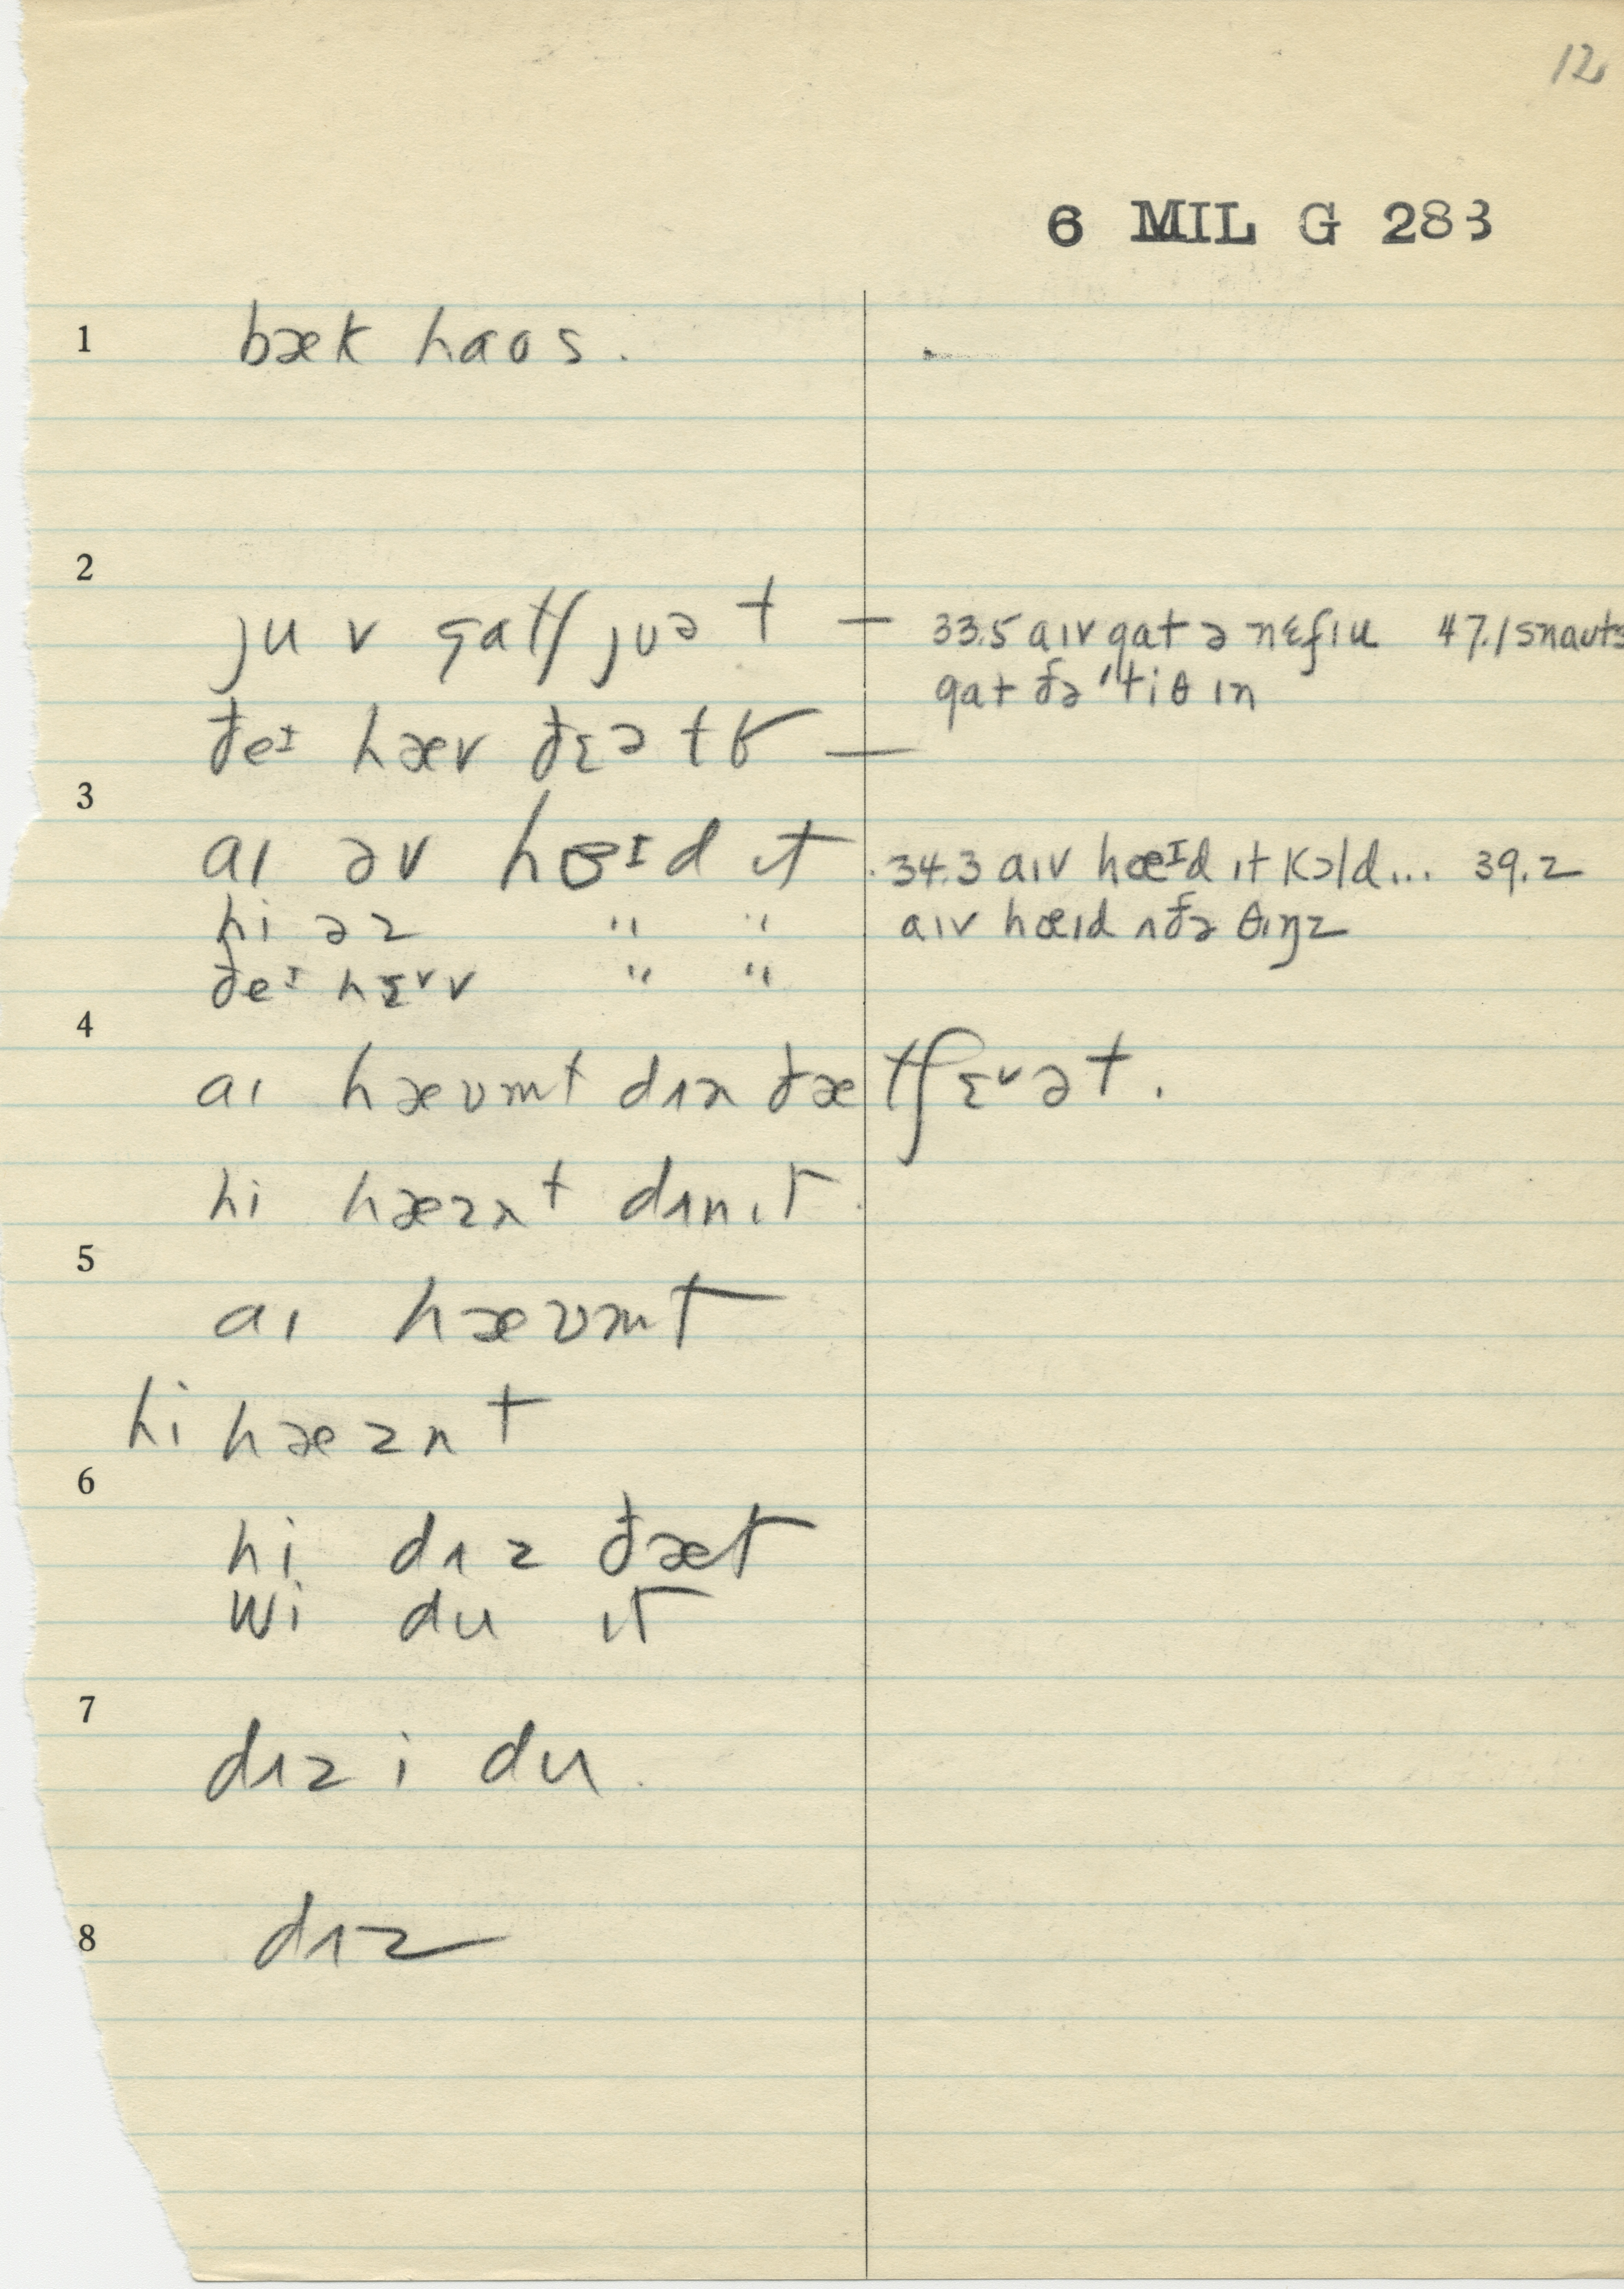 12
6 MIL G 283
1 bæk haos.
2
ju v gatʃ juə t — 33.5 aɪv gat ə nɛfɪu 47.1 snauts
gat ðə 'tiθ ɪn
ðeᴵ hæv ðɛə t —
3
aɪ əv hɞᴵd ɪt . 34.3 aɪv hɞᴵd ɪt kɔld... 39.2
hi əz " " aɪv hɞɪd ʌðə θɪŋz
ðeᴵ hɛᵛv " "
4
aɪ hævm̩t dʌn ðætʃɛᵛət.
hi hæzn̩t dʌn ɪt.
5
aɪ hævm̩t
hi hæzn̩t
6
hi dʌz ðæt
wi du ɪt
7
dʌz i du.
8 dʌz